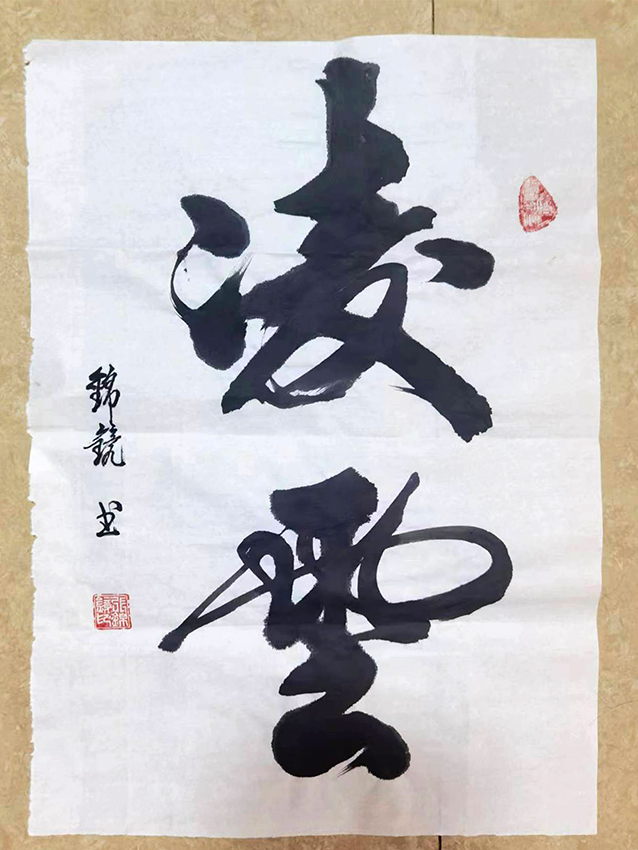 凌雲
錦鏡书